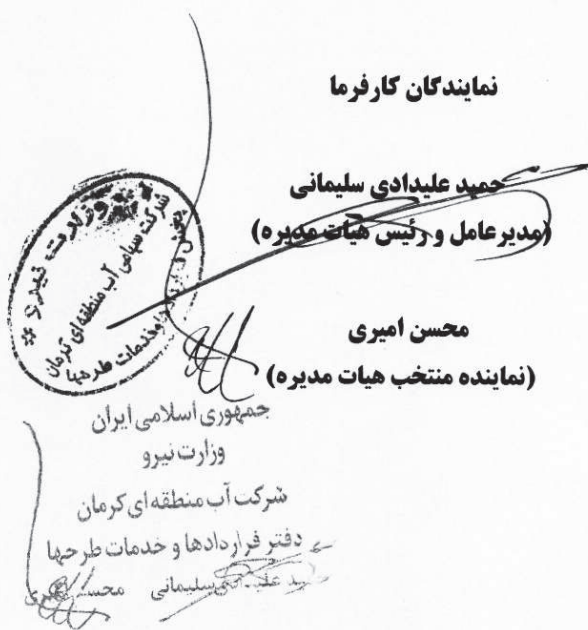 نمایندگان کارفرما
حمید علیدادی سلیمانی
(مدیرعامل و رئیس هیات مدیره)
محسن امیری
(نماینده منتخب هیات مدیره)
وزارت نیرو
شرکت سهامی آب منطقه‌ای کرمان
وخدمات طرحها
جمهوری اسلامی ایران
وزارت نیرو
شرکت آب منطقه‌ای کرمان
دفتر قراردادها و خدمات طرحها
سلیمانی محسن